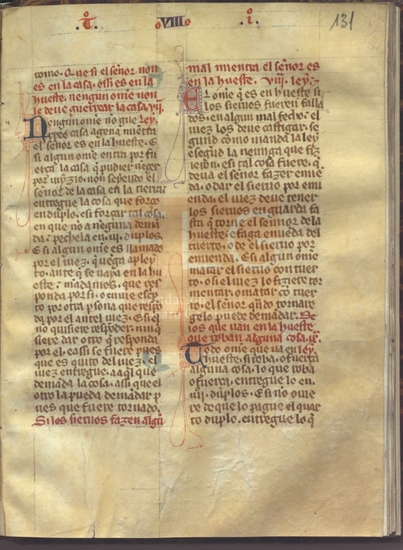 T VIII I
131
como. Que si el señor non
es en la casa. ess es en la
hueste. nengun omne non
le deue quexar la casa. vii.
Nengun omne no gue ley.
brēte casa agena mientra
el señor es en la hueste. E
si algun omne entra por fu
erça la casa q̄ pudier uener
por iuyzio. non seyendo el
señor de la casa en la tierra
entregue la casa que forço
en duplo. si forçar tal cosa
en que no a neguna dema
da. pechela en .iij. duplos.
E si algun omne es llamado
por el iuez. q̄ uega a pley
to. ante q̄ se uaya en la hu
este. mādamos. que res
ponda por si. o enuie eser
por otra psona que respō
da por el ante el iuez. E si el
no quisiere respōder. nin q̄
siere dar otro q̄ responda
por el. assi cōe fuere pues
que es quito del iuez. el
iuez entregue. a aq̄l que
demāda la cosa. assi que el
otro la pueda demādar p
ues que fuere tornado.
Si los sieruos fazen algū
mal mientra el señor es
en la hueste. viii. ley.
Er omne q̄ es en hueste. si
los sieruos fueren falla
dos. en algun mal fecho. el
iuez los deue castigar. se
gund cōmo manda la ley
e segūd la nemiga que fiz
ieron. e si tal cosa fuere. q̄
deua el señor fazer emien
da. o dar el sieruo por emi
enda. el iuez deue tener
los sieruos en guarda fa
sta q̄ torne el sennor de la
hueste. e faga emieda del
tuerto. o de el sieruo por
emienda. E si algun omne
matar el sieruo con tuer
to. o si el iuez lo fiziere tor
mentar. o matar cō tuer
to. el señor q̄n do tornare
gelo puede demādar. De
los que van en la hueste
que roban alguna cosa. ix.
Todo omne que ua en ley.
hueste. si roba. o fuerça
alguna cosa. lo que roba
o fuerça. entregue lo en
iiij. duplos. E si no ouie
re de que lo pague el quar
to duplo. entregue lo q̄